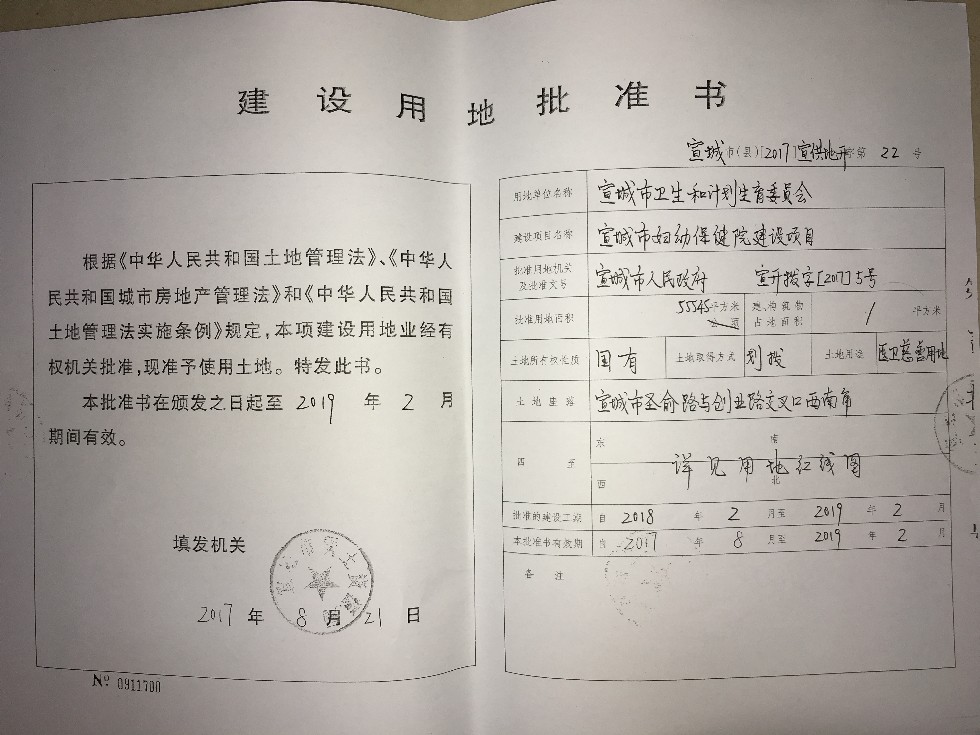 建设用地批准书
宣城市(县)[2017]宣供地开字第 22 号
根据《中华人民共和国土地管理法》、《中华人
民共和国城市房地产管理法》和《中华人民共和国
土地管理法实施条例》规定,本项建设用地业经有
权机关批准,现准予使用土地。特发此书。
本批准书在颁发之日起至 2019 年 2 月
期间有效。
填发机关
2017 年 8 月 21 日
Nº 0911700
用地单位名称 宣城市卫生和计划生育委员会
建设项目名称 宣城市妇幼保健院建设项目
批准用地机关及批准文号 宣城市人民政府 宣开拨字[2017]5号
批准用地面积 55545平方米 建、构筑物占地面积 / 平方米
土地所有权性质 国有 土地取得方式 划拨 土地用途 医卫慈善用地
土地座落 宣城市圣俞路与创业路交叉口西南角
四至 东 南
详见用地红线图
西 北
批准的建设工期 自 2018 年 2 月至 2019 年 2 月
本批准书有效期 自 2017 年 8 月至 2019 年 2 月
备注